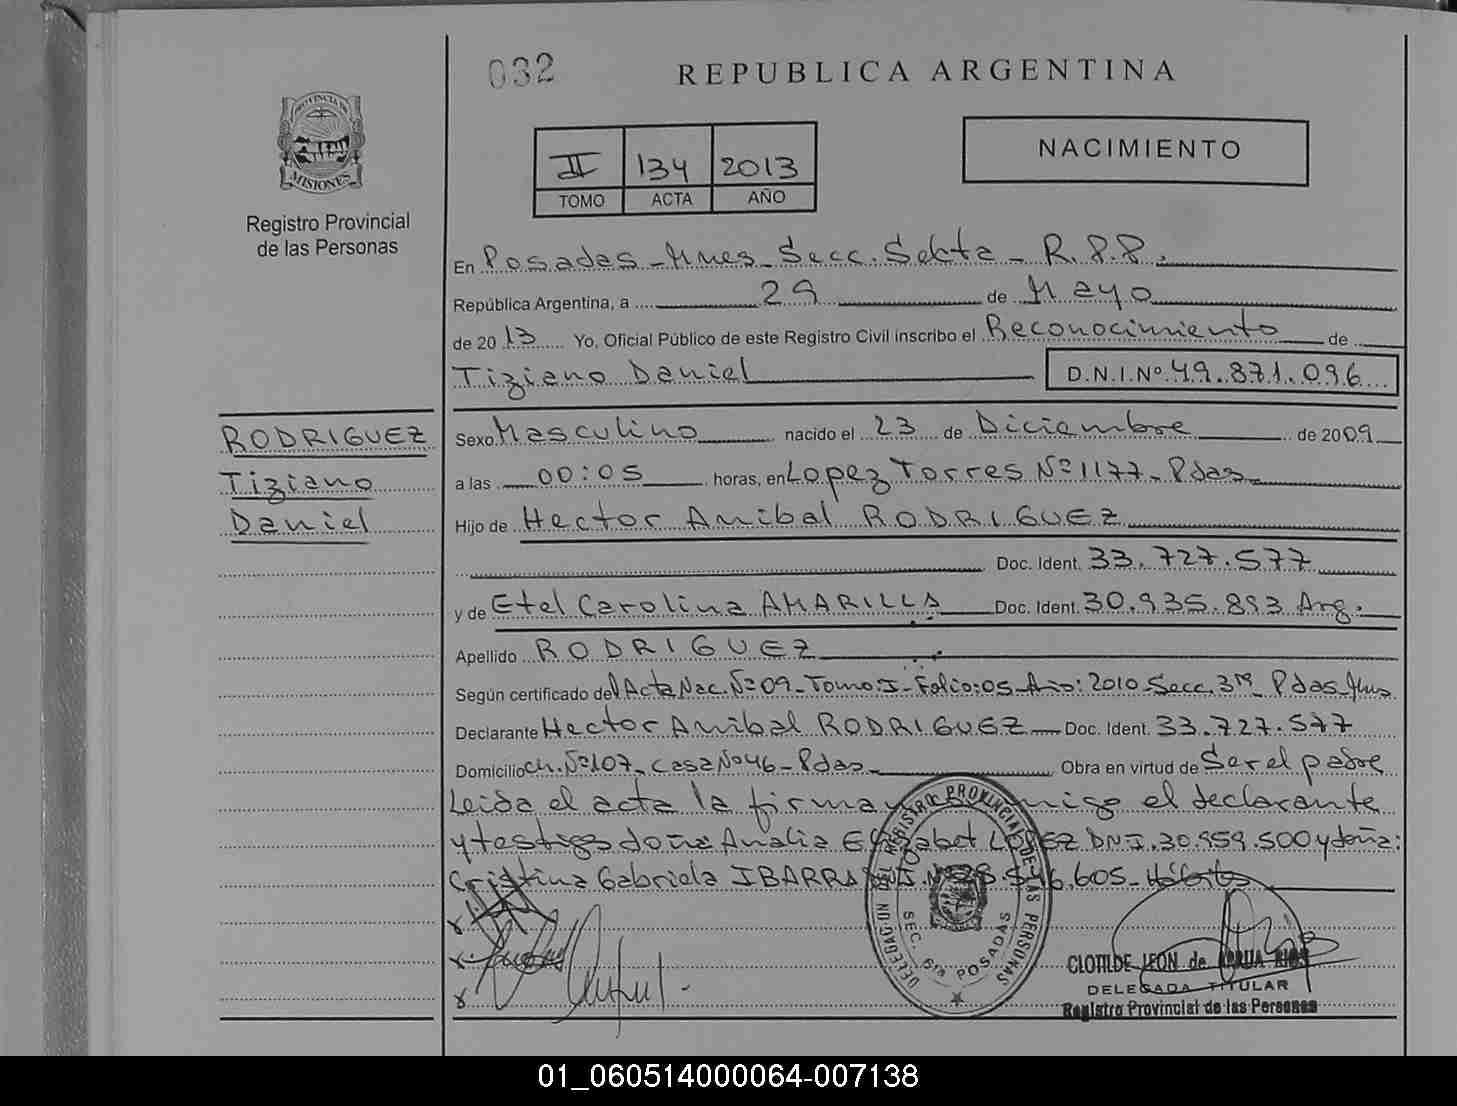 032
REPUBLICA ARGENTINA
PROVINCIA DE
MISIONES
Registro Provincial
de las Personas
II 134 2013
TOMO ACTA AÑO
NACIMIENTO
En Posadas - Mnes - Secc. Sexta - R.P.P.
República Argentina, a 29 de Mayo
de 2013 Yo, Oficial Público de este Registro Civil inscribo el Reconocimiento de
Tiziano Daniel D.N.I.Nº 49.871.096
RODRIGUEZ
Tiziano
Daniel
Sexo Masculino nacido el 23 de Diciembre de 2009
a las 00:05 horas, en Lopez Torres Nº 1177 - Pdas
Hijo de Hector Anibal RODRIGUEZ
Doc. Ident. 33.727.577
y de Etel Carolina AMARILLA Doc. Ident. 30.935.893 Arg.
Apellido RODRIGUEZ
Según certificado del Acta Nac. Nº 09 - Tomo: I - Folio: 05 - Año: 2010 - Secc. 3ra - Pdas - Mnes
Declarante Hector Anibal RODRIGUEZ Doc. Ident. 33.727.577
Domicilio Ch. Nº 107 - Casa Nº 46 - Pdas - Obra en virtud de Ser el padre
Leida el acta la firma conmigo el declarante
y testigos doña Analia Elizabet LOPEZ DNI. 30.959.500 y doña:
Cristina Gabriela IBARRA DNI. Nº 28.546.605 - Hábiles
DELEGACION DEL REGISTRO PROVINCIAL DE LAS PERSONAS
SEC. 6ta POSADAS
CLOTILDE LEON de RIOS
DELEGADA TITULAR
Registro Provincial de las Personas
01_060514000064-007138